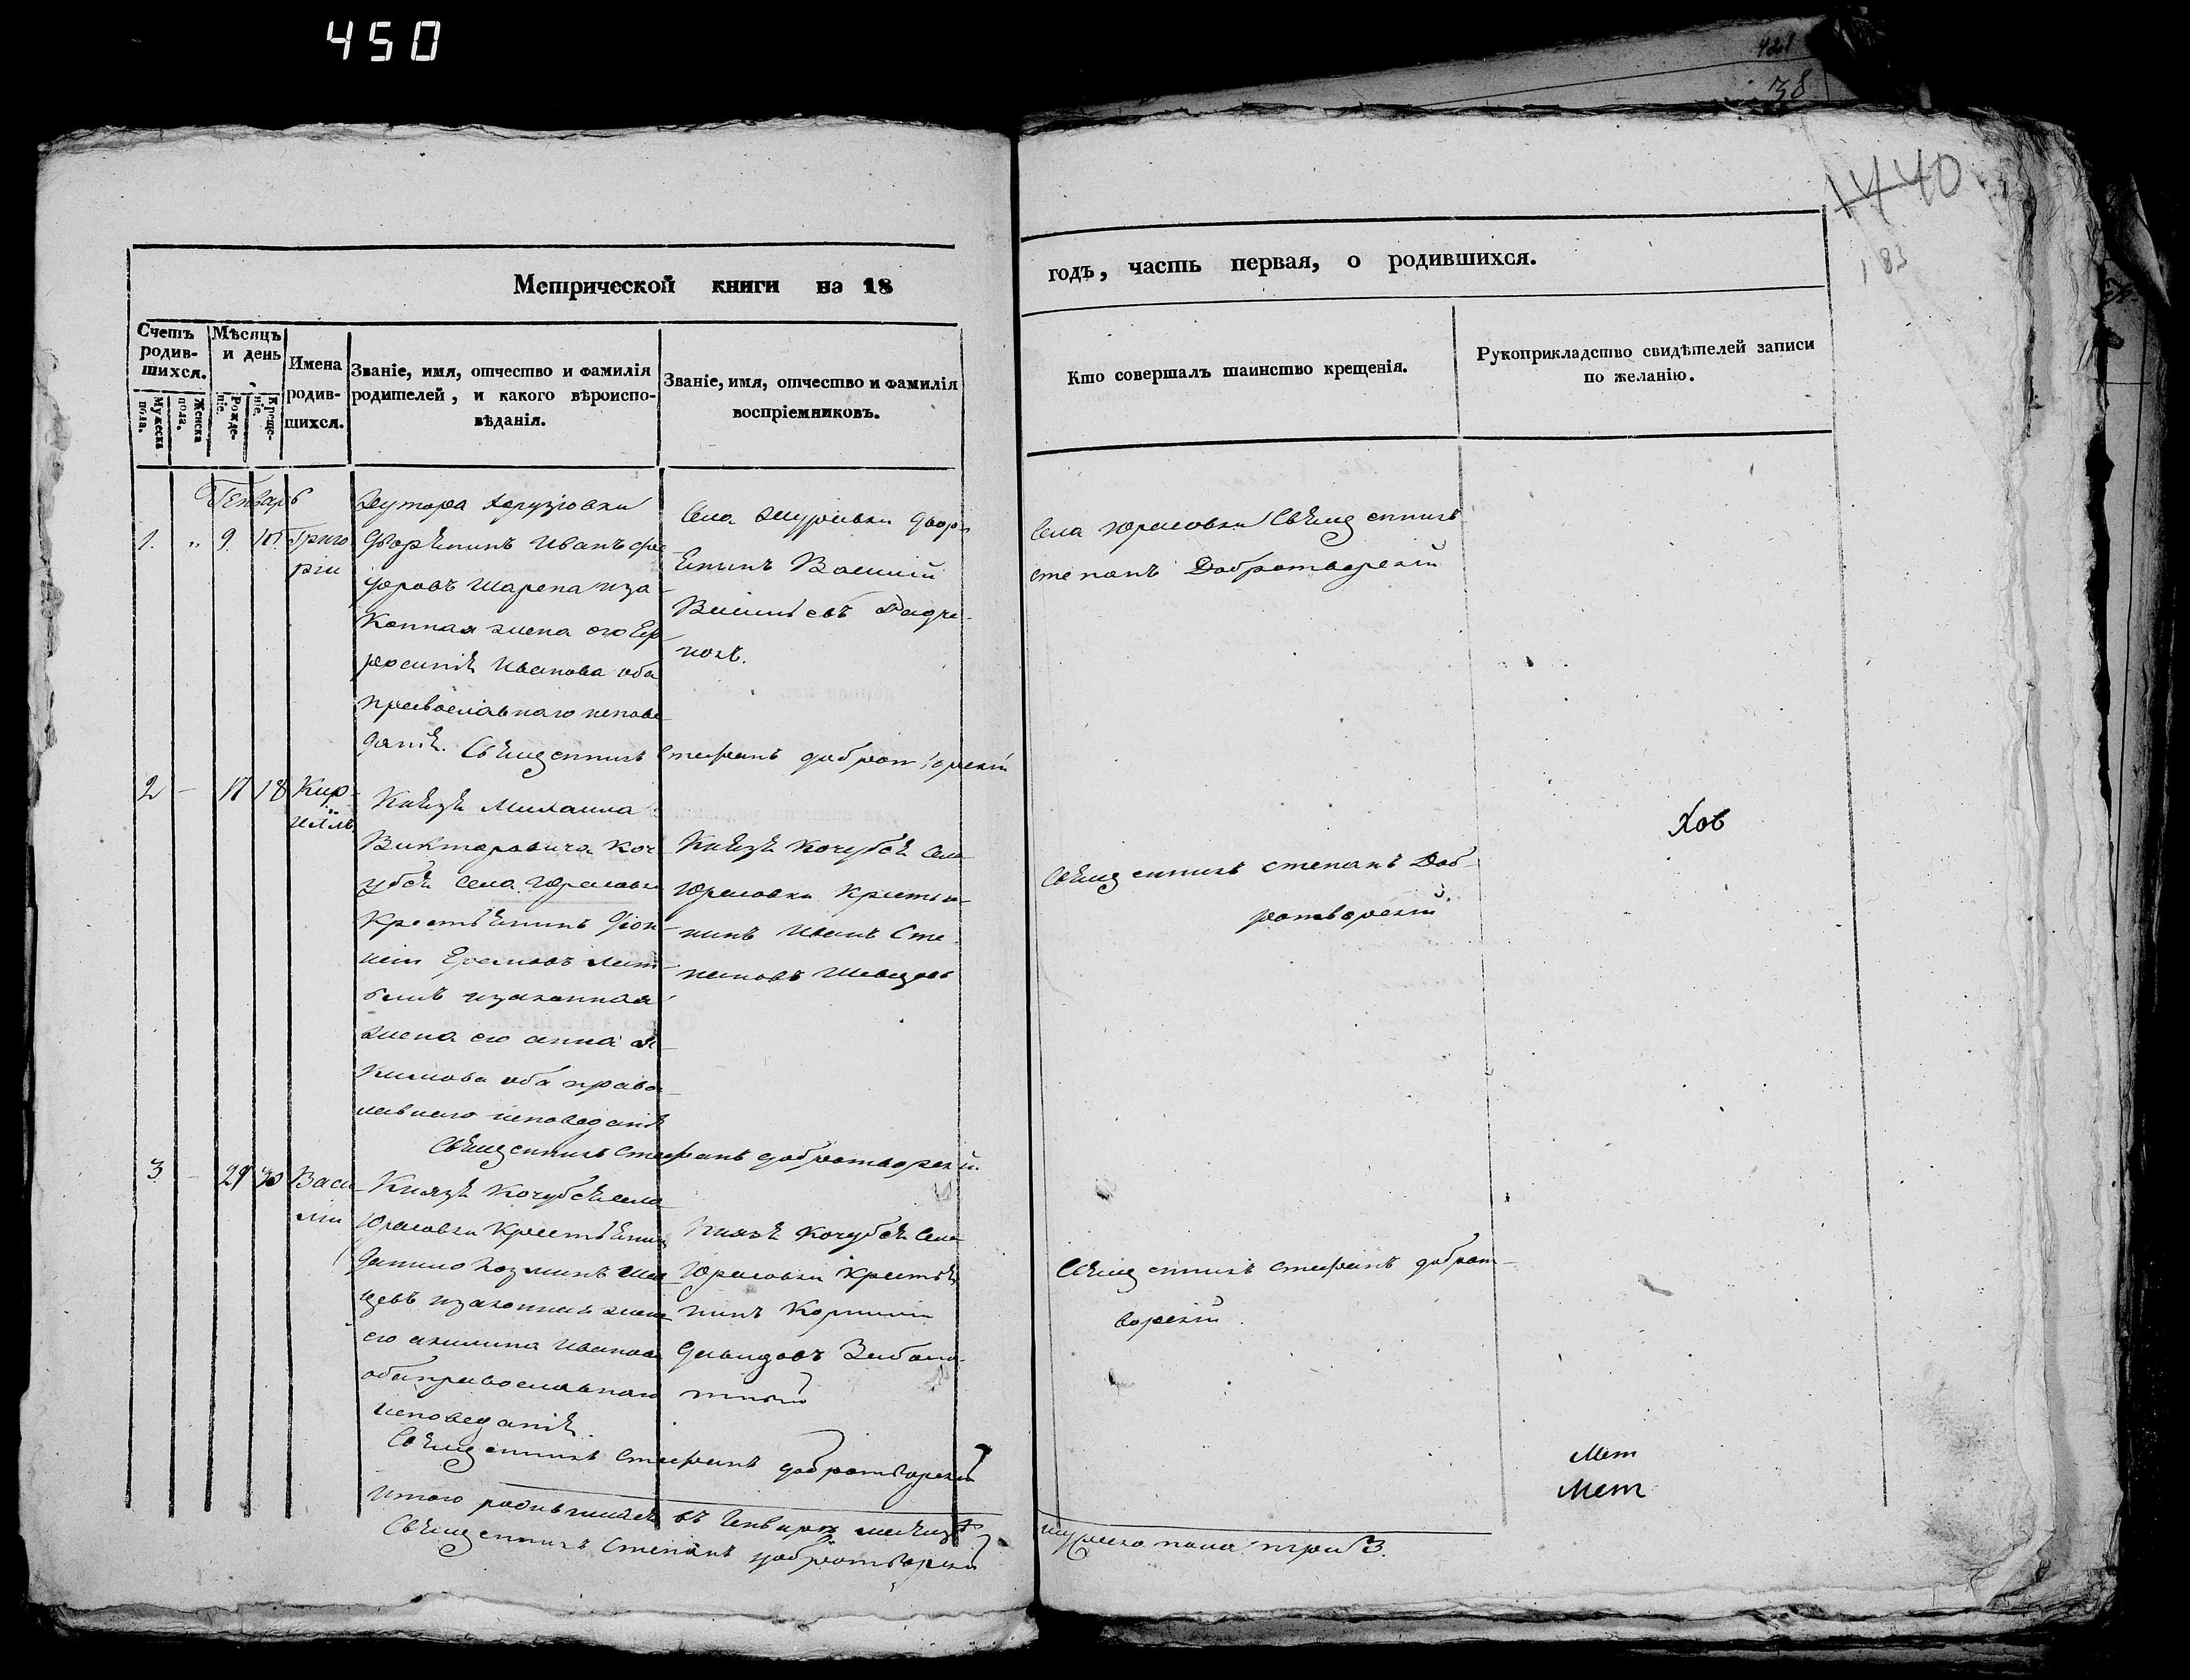 450
428
38
440
183
Метрической книги на 18
годъ, часть первая, о родившихся.
Счетъ родив-шихся.
Мужеска пола.
Женска пола.
Мѣсяцъ и день
Рожде-ніе.
Креще-ніе.
Имена родив-шихся.
Званіе, имя, отчество и фамилія
родителей, и какого вѣроиспо-
вѣданія.
Званіе, имя, отчество и фамилія
воспріемниковъ.
Кто совершалъ таинство крещенія.
Рукоприкладство свидѣтелей записи
по желанію.
Генварь
1. " 9. 10. Григо
рій
Хутора
дворѣнинъ Иванъ Фе
доровъ Шарепа иза
конная жена его Еф
росинiѣ Иванова оба
православнаго испове
данiѣ. Свѣщенникъ Стефанъ Добротворскій
Села Журавки двор
ѣнинъ Василій
Васильевъ
Села Юрасовки Свѣщенникъ
Степанъ Добротворскій
2 — 17 18 Кир-
иллъ
Кнѣзѣ Михаила
Викторовича Коч
убѣѣ села Юрасовки
Крестьѣнинъ Діон
исій
изаконная
жена его Анна Я
кимова оба право
славнаго исповеданiѣ
Свѣщенникъ Стефанъ Добротворскій.
Кнѣзѣ Кочубѣѣ села
Юрасовки Крестья
нинъ Иванъ Сте
пановъ Шевцовъ
Свѣщенникъ Степанъ Доб-
ротворскій.
Хов
3 — 29 30 Васи
лій
Князѣ Кочубѣѣ села
Юрасовки Крестьѣнинъ
Данило Козминъ Шев
цовъ изаконная жена
его Акилина Иванова
оба православнаго
исповеданiѣ.
Свѣщенникъ Стефанъ Добротворскій
Князѣ Кочубѣѣ села
Юрасовки Крестьѣ
нинъ Корнилій
Давидовъ
Свѣщенникъ Стефанъ Доброт-
ворскій.
Мет
Мет
Итого родившихся въ Генваре месецѣ
мужеска пола три 3.
Свѣщенникъ Степанъ Добротворскій